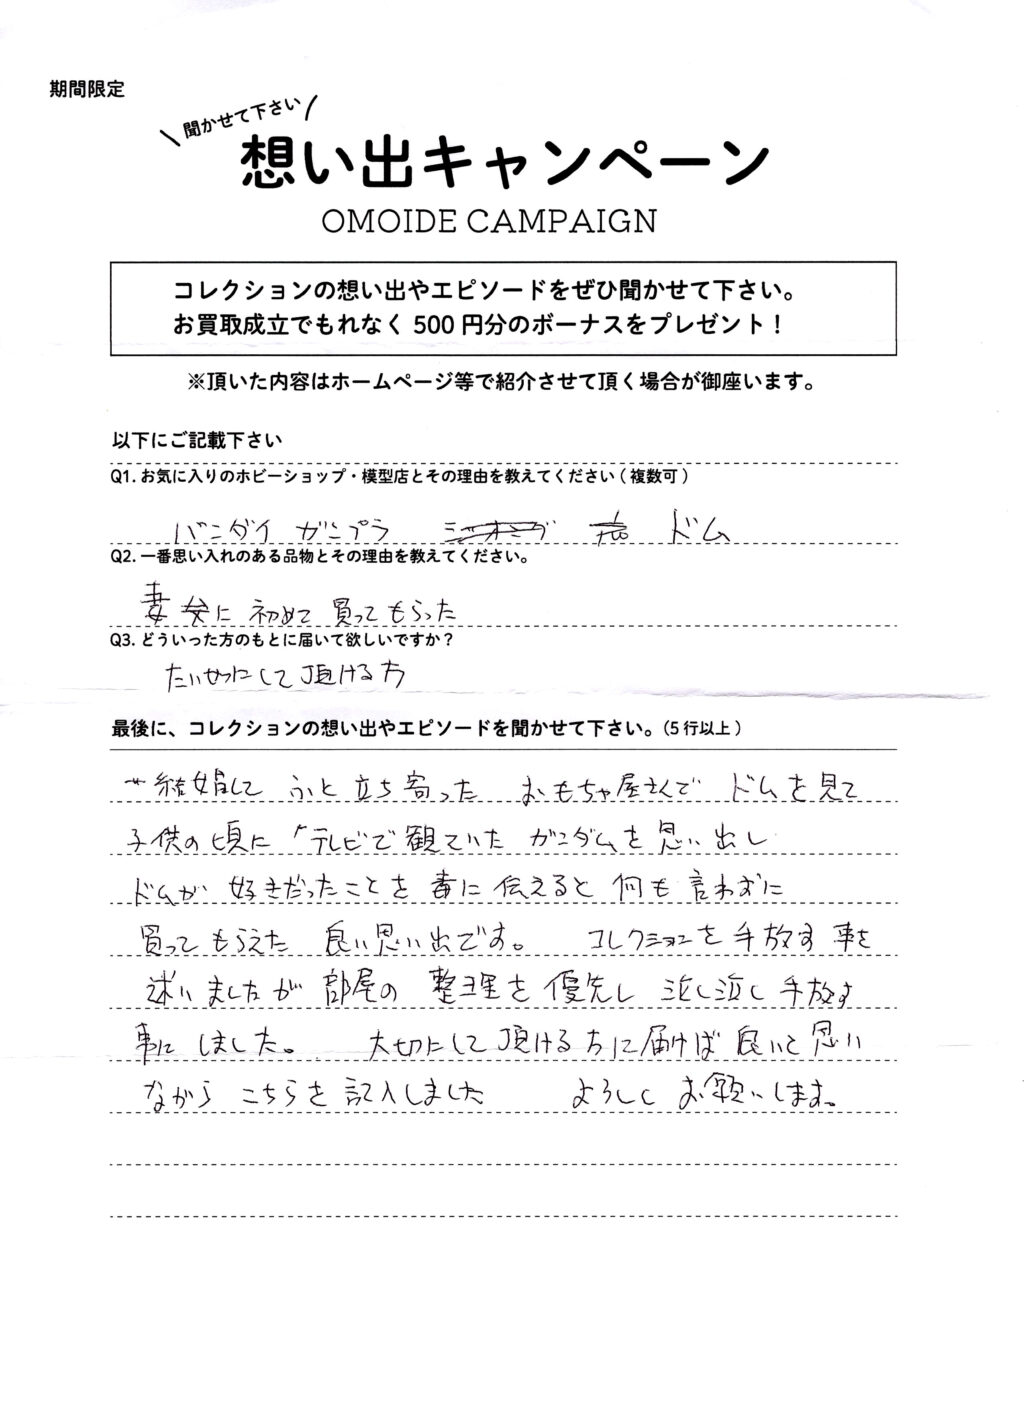 期間限定
聞かせて下さい
想い出キャンペーン
OMOIDE CAMPAIGN
コレクションの想い出やエピソードをぜひ聞かせて下さい。
お買取成立でもれなく 500 円分のボーナスをプレゼント！
※頂いた内容はホームページ等で紹介させて頂く場合が御座います。
以下にご記載下さい
Q1. お気に入りのホビーショップ・模型店とその理由を教えてください ( 複数可 )
バンダイ ガンプラ ドム
Q2. 一番思い入れのある品物とその理由を教えてください。
妻に 初めて 買ってもらった
Q3. どういった方のもとに届いて欲しいですか？
たい切にして頂ける方
最後に、コレクションの想い出やエピソードを聞かせて下さい。(5 行以上 )
結婚して ふと立ち寄った おもちゃ屋さんで ドムを見て
子供の頃に テレビで観ていた ガンダムを思い出し
ドムが 好きだったことを 妻に伝えると 何も言わずに
買ってもらえた 良い思い出です。 コレクションを手放す事を
迷いましたが 部屋の 整理を優先し 泣く泣く手放す
事にしました。 大切にして頂ける方に届けば良いと思い
ながら こちらを記入しました よろしく お願いします。